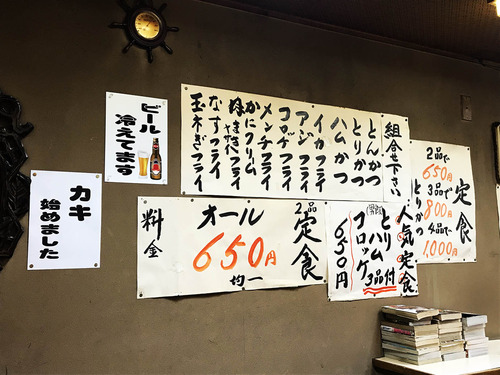 ビール
冷えてます
カキ
始めました
組合せ下さい
とんかつ
とりかつ
ハムかつ
イカフライ
アジフライ
コロッケフライ
メンチフライ
かにクリーム
なすフライ
玉ネギフライ
定食
2品で
650円
3品で
800円
4品で
1,000円
2品
定食
オール
650円
均一
料金
人気定食
とりかつ
ハム
コロッケ
3品付
650円